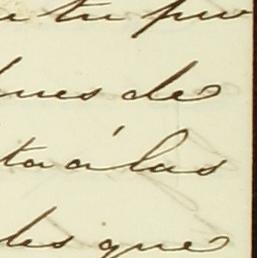 tu pu
ues de
ta á las
les que